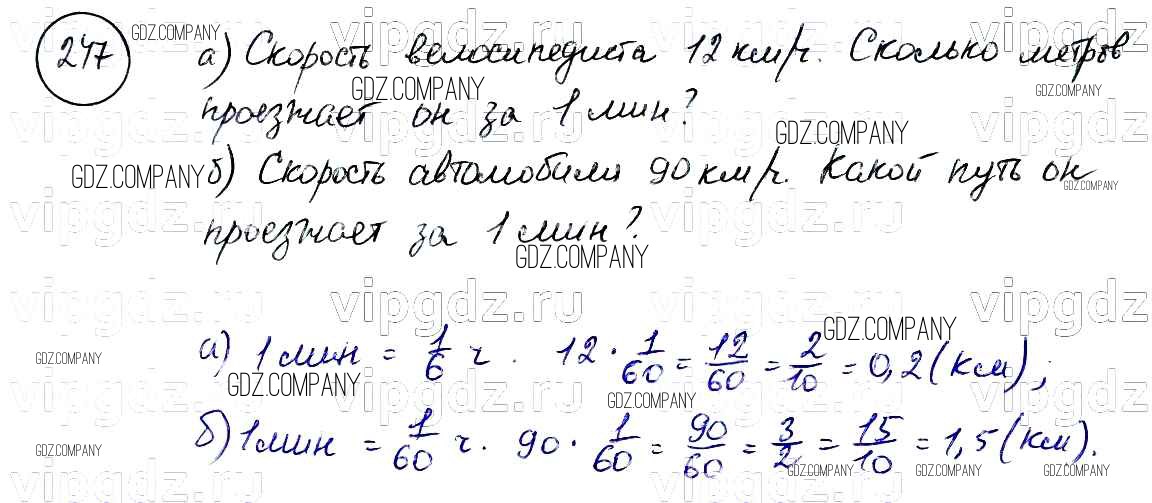 247 а) Скорость велосипедиста 12 км/ч. Сколько метров
проезжает он за 1 мин?
б) Скорость автомобиля 90 км/ч. Какой путь он
проезжает за 1 мин?
а) 1 мин = 1/6 ч. 12 · 1/60 = 12/60 = 2/10 = 0,2 (км);
б) 1 мин = 1/60 ч. 90 · 1/60 = 90/60 = 3/2 = 15/10 = 1,5 (км).
vipgdz.ru
GDZ.COMPANY